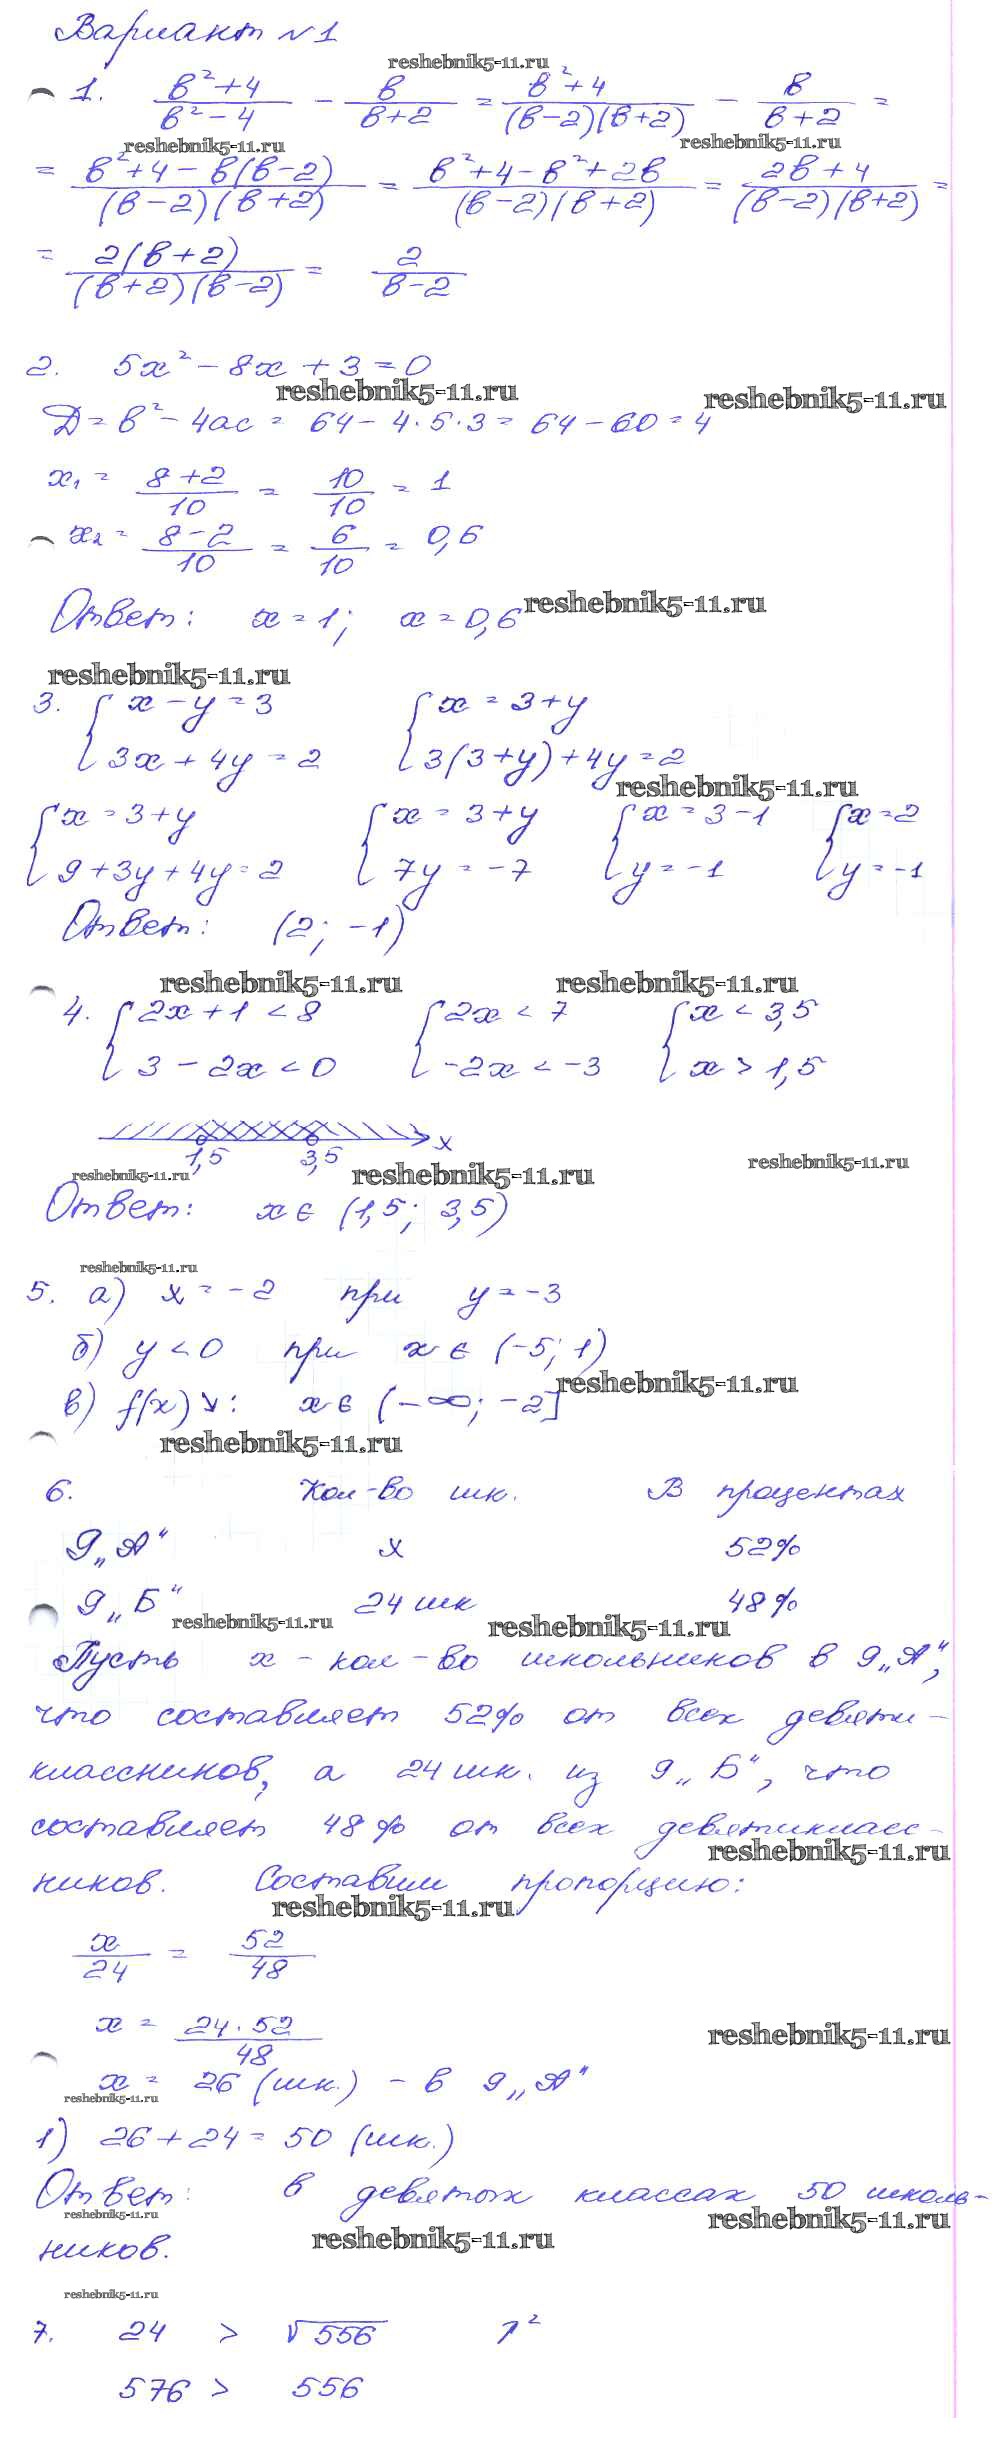 Вариант №1
reshebnik5-11.ru
1. (b²+4)/(b²-4) - b/(b+2) = (b²+4)/((b-2)(b+2)) - b/(b+2) =
reshebnik5-11.ru reshebnik5-11.ru
= (b²+4-b(b-2))/((b-2)(b+2)) = (b²+4-b²+2b)/((b-2)(b+2)) = (2b+4)/((b-2)(b+2)) =
= (2(b+2))/((b+2)(b-2)) = 2/(b-2)
2. 5x²-8x+3=0
reshebnik5-11.ru reshebnik5-11.ru
D=b²-4ac= 64-4·5·3= 64-60=4
x₁= (8+2)/10 = 10/10 = 1
x₂= (8-2)/10 = 6/10 = 0,6
Ответ: x=1; x=0,6
reshebnik5-11.ru
reshebnik5-11.ru
3. { x-y=3 { x=3+y
3x+4y=2 3(3+y)+4y=2
reshebnik5-11.ru
{ x=3+y { x=3+y { x=3-1 { x=2
9+3y+4y=2 7y=-7 y=-1 y=-1
Ответ: (2; -1)
reshebnik5-11.ru reshebnik5-11.ru
4. { 2x+1<8 { 2x<7 { x<3,5
3-2x<0 -2x<-3 x>1,5
x
1,5 3,5
reshebnik5-11.ru reshebnik5-11.ru reshebnik5-11.ru
Ответ: x∈ (1,5; 3,5)
reshebnik5-11.ru
5. а) x=-2 при y=-3
б) y<0 при x∈ (-5; 1)
reshebnik5-11.ru
в) f(x)↘: x∈ (-∞; -2]
reshebnik5-11.ru
6. Кол-во шк. В процентах
9„А“ x 52%
9„Б“ 24 шк 48%
reshebnik5-11.ru reshebnik5-11.ru
Пусть x - кол-во школьников в 9„А“,
что составляет 52% от всех девяти-
классников, а 24 шк. из 9„Б“, что
составляет 48% от всех девятикласс-
reshebnik5-11.ru
ников. Составим пропорцию:
reshebnik5-11.ru
x/24 = 52/48
x = (24·52)/48
reshebnik5-11.ru
x= 26 (шк.) - в 9„А“
reshebnik5-11.ru
1) 26+24=50 (шк.)
Ответ: в девятых классах 50 школь-
reshebnik5-11.ru reshebnik5-11.ru
ников.
reshebnik5-11.ru
reshebnik5-11.ru
7. 24 > √556 ↑²
576 > 556